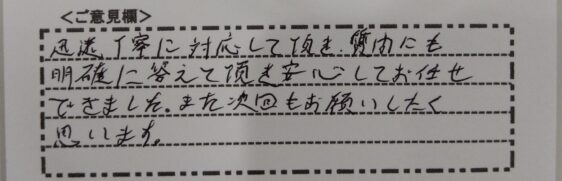 <ご意見欄>
迅速丁寧に対応して頂き、質問にも
明確に答えて頂き安心してお任せ
できました。また次回もお願いしたく
思います。